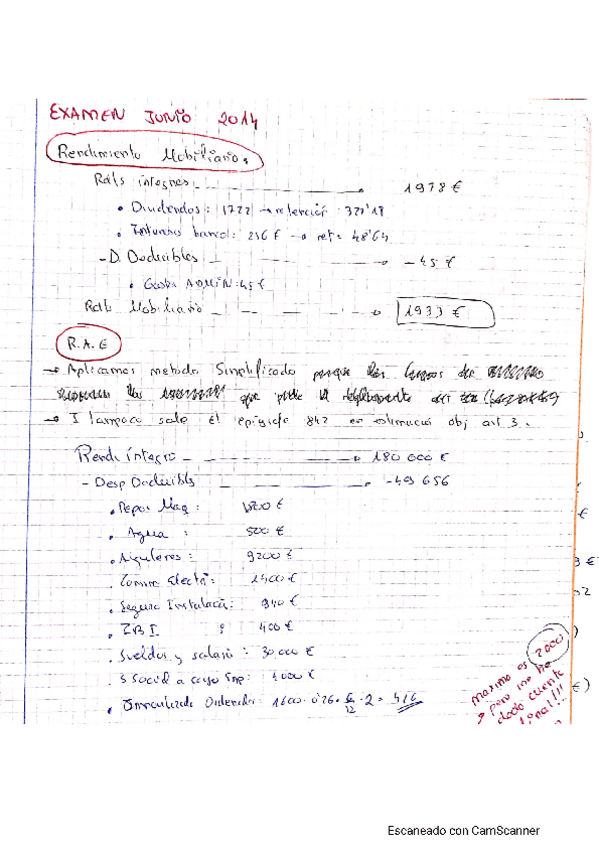 EXAMEN JUNIO 2014
Rendimiento Mobiliario.
Rdts íntegros 1978 €
• Dividendos: 1722 → retención: 327'18
• Intereses banco: 256 € → ret= 48'64
- D. Deducibles → - 45 €
• Gastos ADMIN: 45 €
Rdto Mobiliario → 1933 €
R.A.E
→ Aplicamos metodo Simplificado porque
que
→ I tampoco sale el epígrafe 842 en estimació obj art 3.
Rendi íntegro → 180 000 €
- Desp Deducibles → -49 656
• Repar Maq:
• Agua : 500 €
• Alquileres: 9200 €
• Consum Electr: 1400 €
• Seguro Instalació: 940 €
• IBI : 400 €
• Sueldos y salario: 30 000 €
• S Social a cargo Emp:
• Inmovilizado Ordenador: 1600 · 0'26 · 6/12 · 2 = 416
maximo es 2000
pero me he
dado cuenta
final!!!
Escaneado con CamScanner